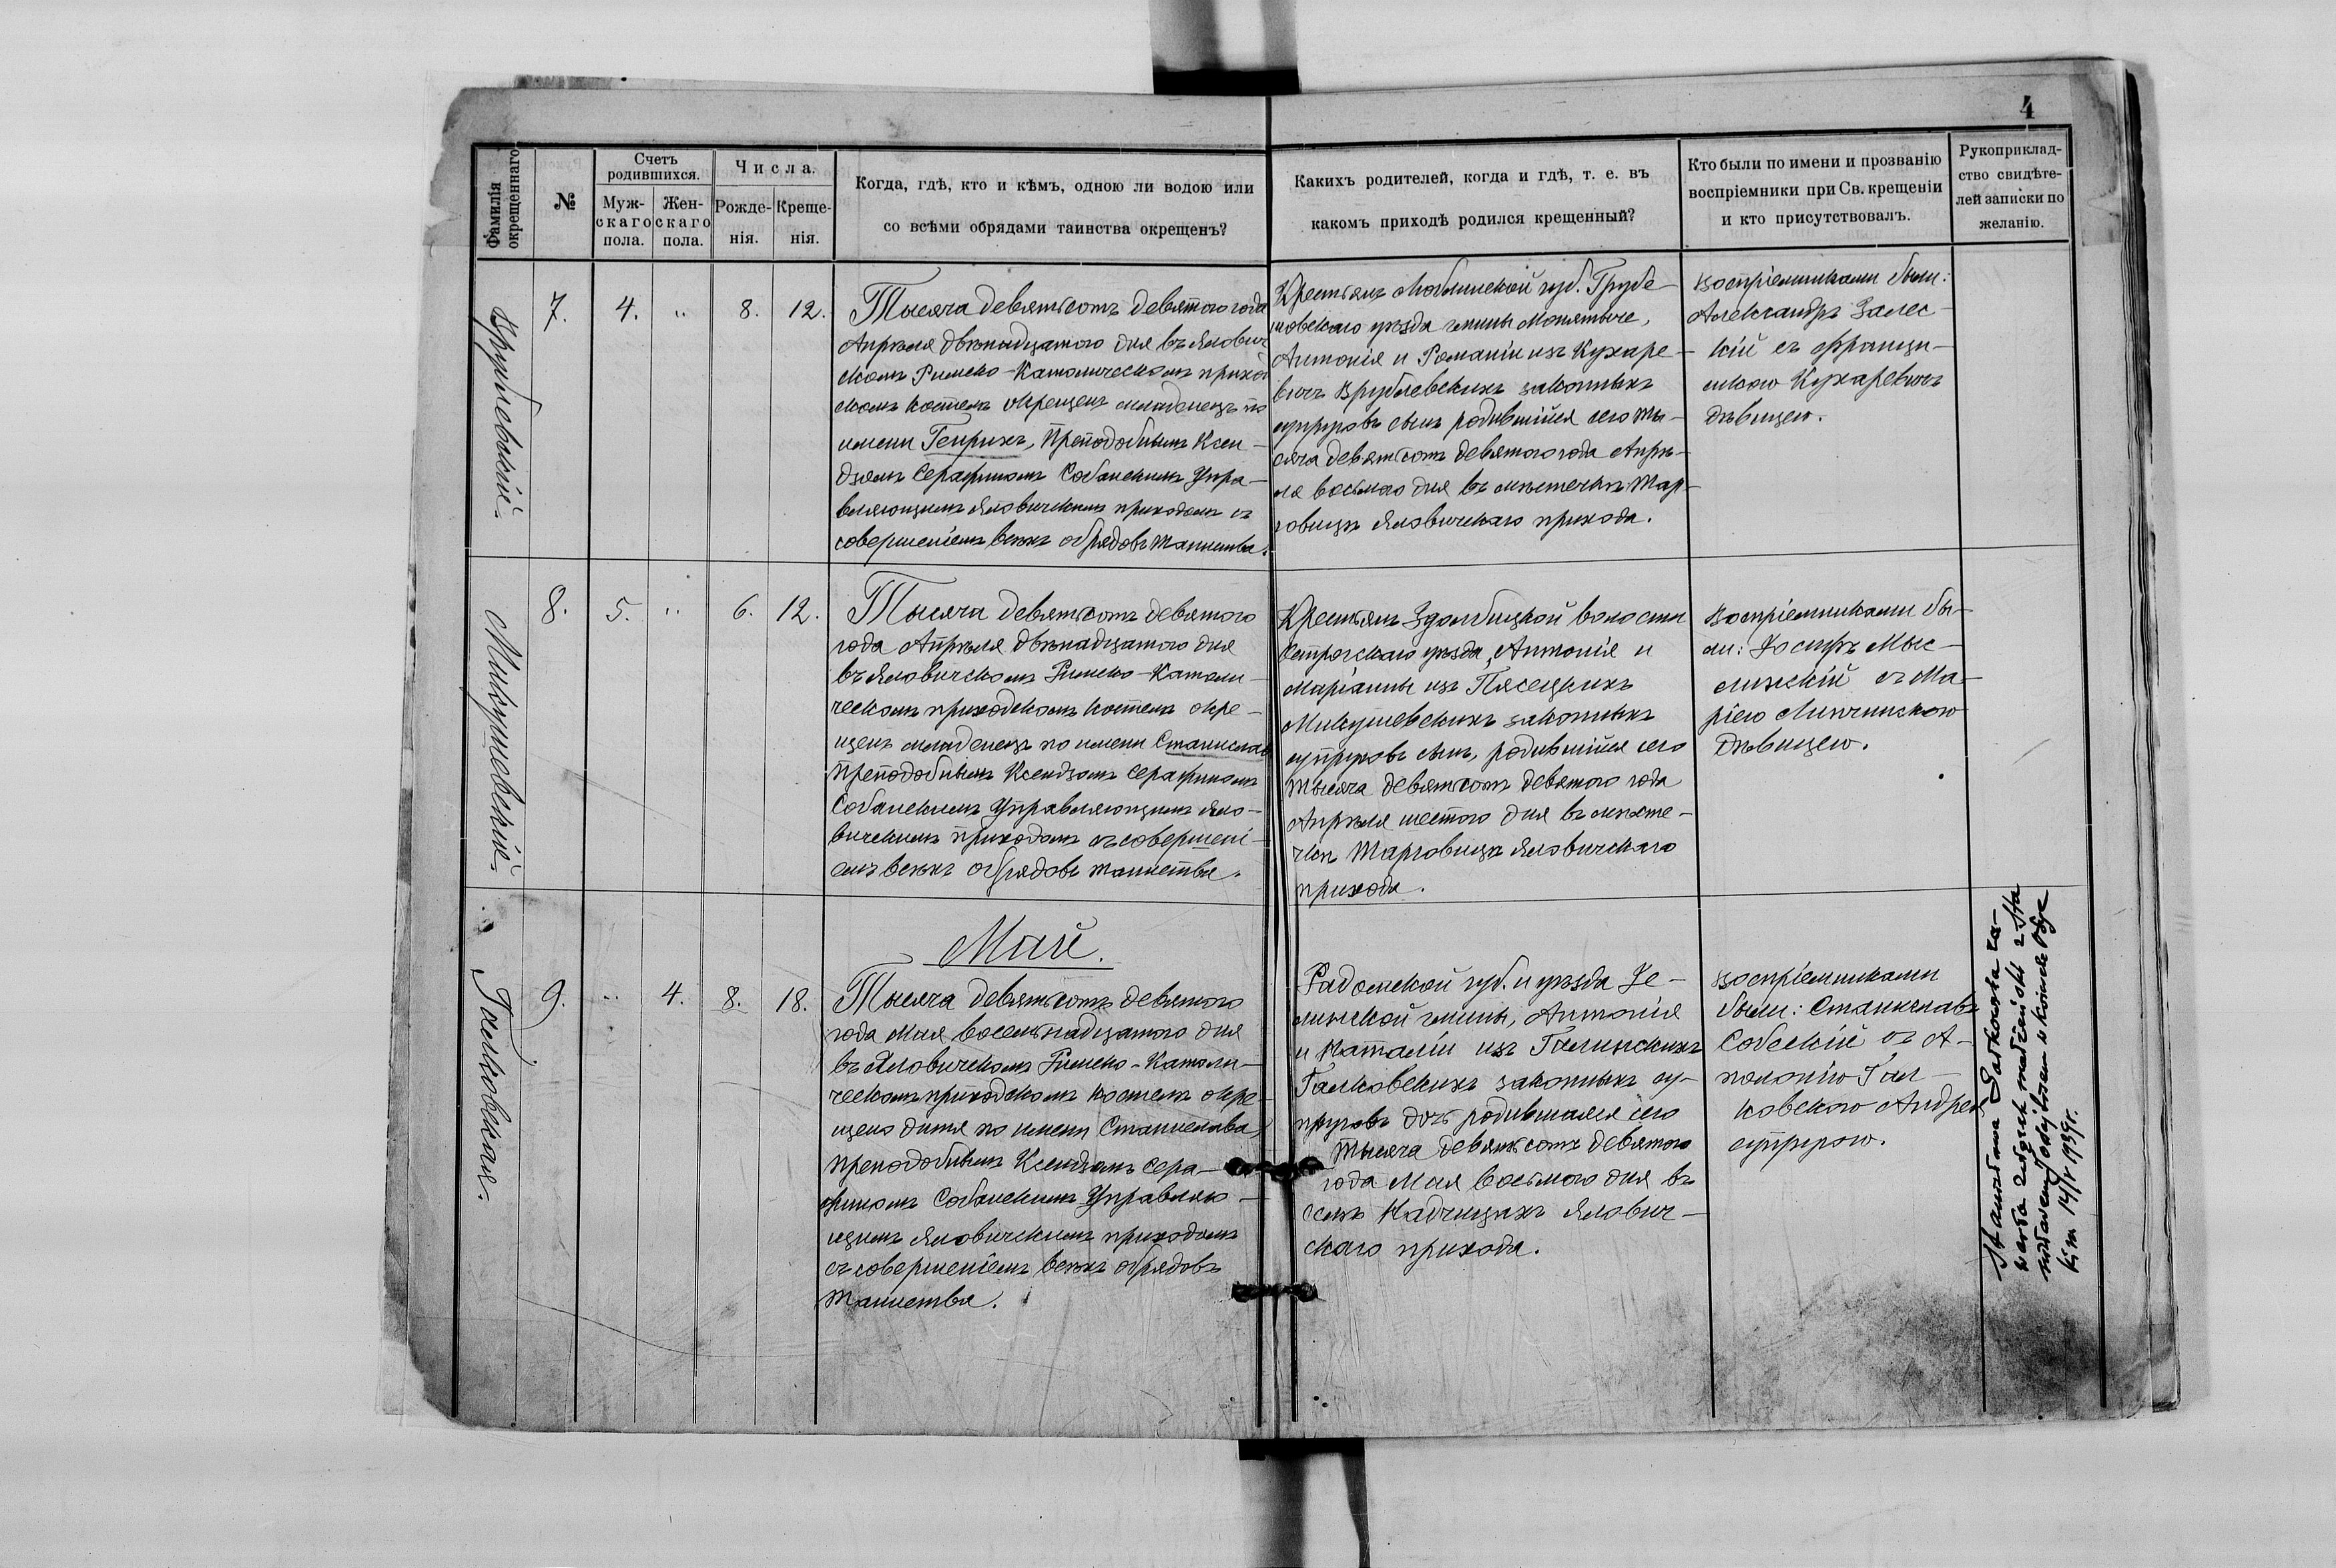 4
Фамилія
окрещеннаго
№
Счетъ
родившихся.
Муж-
скаго
пола.
Жен-
скаго
пола.
Числа.
Рожде-
нія.
Креще-
нія.
Когда, гдѣ, кто и кѣмъ, одною ли водою или
со всѣми обрядами таинства окрещенъ?
Какихъ родителей, когда и гдѣ, т. е. въ
какомъ приходѣ родился крещенный?
Кто были по имени и прозванію
воспріемники при Св. крещеніи
и кто присутствовалъ.
Рукоприклад-
ство свидѣте-
лей записки по
желанію.
Врублевскій
7.
4.
"
8.
12.
Тысяча девятьсотъ девятого года
Апрѣля двѣнадцатого дня въ Ялович
скомъ Римско-Католическомъ приход
скомъ костелѣ окрещенъ младенецъ по
имени Генрихъ, Преподобнымъ Ксен-
дзомъ Серафиномъ Собанскимъ Упра-
вляющимъ Яловичскимъ приходомъ съ
совершеніемъ всѣхъ обрядовъ таинства.
Крестьянъ Люблинской губ. Грубе-
шовскаго уѣзда гмины Монятыче,
Антонія и Романіи изъ Кухаре-
вичъ Врублевскихъ законныхъ
супруговъ сынъ родившійся сего ты-
сяча девятьсотъ девятого года Апрѣ-
ля восьмого дня въ мѣстечкѣ Тар-
говицѣ Яловичскаго прихода.
Воспріемниками были:
Александръ Залес-
кій съ Франци-
шкою Кухаревичъ
дѣвицею.
Микушевскій
8.
5.
"
6.
12.
Тысяча девятьсотъ девятого
года Апрѣля двѣнадцатого дня
въ Яловичскомъ Римско-Католи-
ческомъ приходскомъ костелѣ окре-
щенъ младенецъ по имени Станиславъ
Преподобнымъ Ксендзомъ Серафиномъ
Собанскимъ Управляющимъ Яло-
вичскимъ приходомъ съ совершені-
емъ всѣхъ обрядовъ таинства.
Крестьянъ Здолбицкой волости
Острогскаго уѣзда, Антонія и
Маріанны изъ Пясецкихъ
Микушевскихъ законныхъ
супруговъ сынъ, родившійся сего
тысяча девятьсотъ девятого года
Апрѣля шестого дня въ мѣсте-
чкѣ Тарговицѣ Яловичскаго
прихода.
Воспріемниками бы-
ли: Іосифъ Мыс-
линскій съ Ма-
ріею Липчинскою
дѣвицею.
Галковская
9.
"
4.
8.
18.
Май.
Тысяча девятьсотъ девятого
года Мая восемнадцатого дня
въ Яловичскомъ Римско-Католи-
ческомъ приходскомъ костелѣ окре-
щено дитя по имени Станислава,
Преподобнымъ Ксендзомъ Сера-
финомъ Собанскимъ Управляю-
щимъ Яловичскимъ приходомъ
съ совершеніемъ всѣхъ обрядовъ
таинства.
Радомской губ. и уѣзда Зе-
линской гмины, Антонія
и Наталіи изъ Галинскихъ
Галковскихъ законныхъ су-
пруговъ дочь родившаяся сего
тысяча девятьсотъ девятого
года Мая восьмого дня въ
селѣ Надчицахъ Ялович-
скаго прихода.
Воспріемниками
были: Станиславъ
Собескій съ А-
полонію Гал-
ковскою Андрея
супругою.
Stanisława Gałkowska za-
warła związek małżeński z Sta
w kościele
kim 14/V 1939 r.